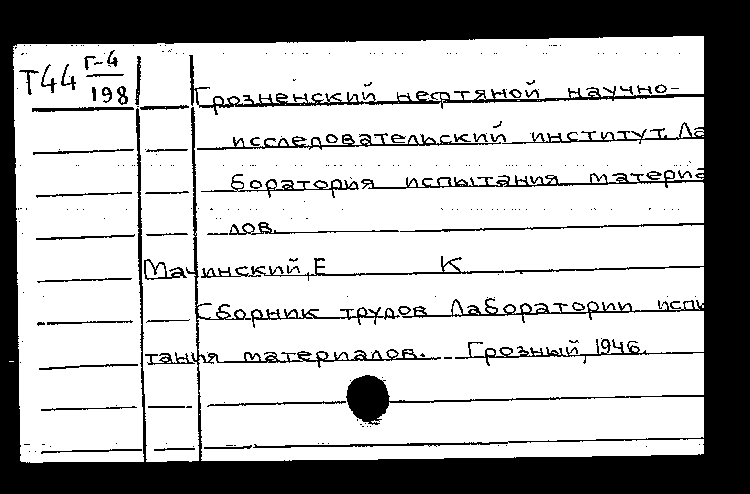 Т44 Г-4/198
Грозненский нефтяной научно-
исследовательский институт. Ла
боратория испытания материа
лов.
Мачинский, Е К
Сборник трудов Лаборатории испы
тания материалов. Грозный, 1946.